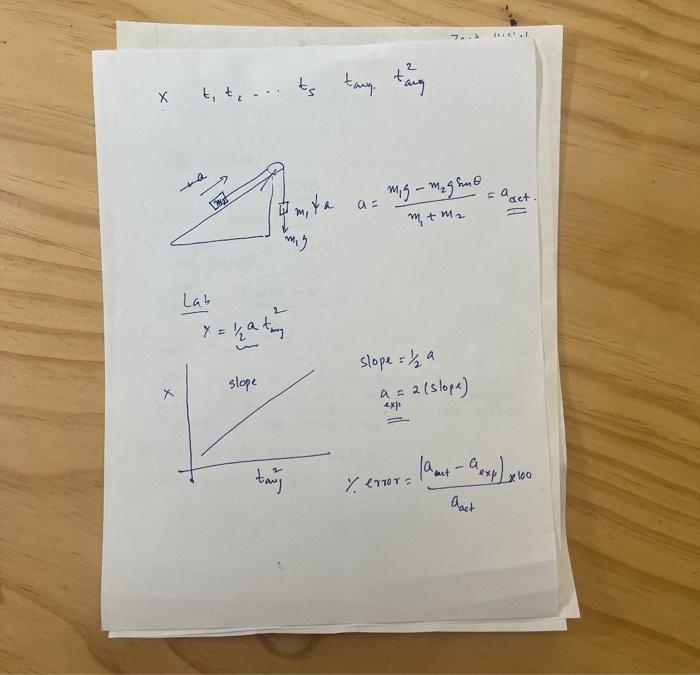 x t₁ t₂ ... t₅ tavg. t²avg
a
m₂
m₁ ↓ a
m₁g
a = (m₁g - m₂g Sinθ) / (m₁ + m₂) = a act.
Lab
x = 1/2 a t²avg
x
slope
t²avg
slope = 1/2 a
a exp = 2 (slope)
% error = |a act - a exp| / a act x 100